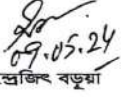 09.05.24
ন্দ্রজিৎ বড়ুয়া